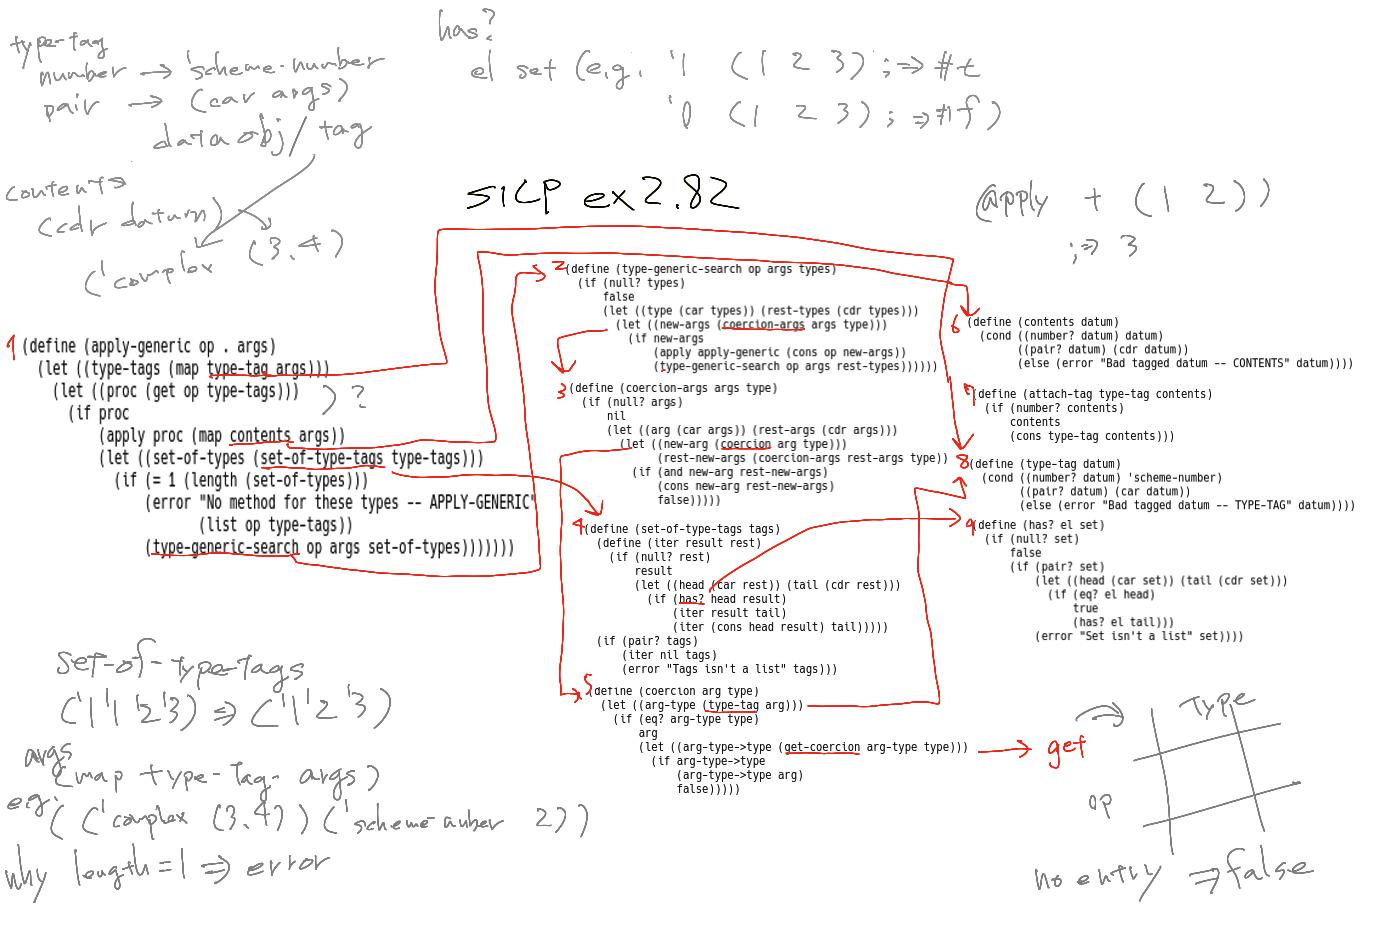 type-tag
number → 'scheme-number
pair → (car args)
data obj/tag
contents
(cdr datum)
('complex (3.4)
has?
el set (e.g. '1 (1 2 3) ;⇒ #t
'0 (1 2 3) ; ⇒ #f)
SICP ex2.82
(apply + (1 2))
;⇒ 3
1 (define (apply-generic op . args)
(let ((type-tags (map type-tag args)))
(let ((proc (get op type-tags))) ) ?
(if proc
(apply proc (map contents args))
(let ((set-of-types (set-of-type-tags type-tags)))
(if (= 1 (length (set-of-types)))
(error "No method for these types -- APPLY-GENERIC"
(list op type-tags))
(type-generic-search op args set-of-types)))))))
2 (define (type-generic-search op args types)
(if (null? types)
false
(let ((type (car types)) (rest-types (cdr types)))
(let ((new-args (coercion-args args type)))
(if new-args
(apply apply-generic (cons op new-args))
(type-generic-search op args rest-types))))))
3 (define (coercion-args args type)
(if (null? args)
nil
(let ((arg (car args)) (rest-args (cdr args)))
(let ((new-arg (coercion arg type))
(rest-new-args (coercion-args rest-args type))
(if (and new-arg rest-new-args)
(cons new-arg rest-new-args)
false)))))
4 (define (set-of-type-tags tags)
(define (iter result rest)
(if (null? rest)
result
(let ((head (car rest)) (tail (cdr rest)))
(if (has? head result)
(iter result tail)
(iter (cons head result) tail)))))
(if (pair? tags)
(iter nil tags)
(error "Tags isn't a list" tags)))
5 (define (coercion arg type)
(let ((arg-type (type-tag arg)))
(if (eq? arg-type type)
arg
(let ((arg-type->type (get-coercion arg-type type)))
(if arg-type->type
(arg-type->type arg)
false)))))
6 (define (contents datum)
(cond ((number? datum) datum)
((pair? datum) (cdr datum))
(else (error "Bad tagged datum -- CONTENTS" datum))))
7 (define (attach-tag type-tag contents)
(if (number? contents)
contents
(cons type-tag contents)))
8 (define (type-tag datum)
(cond ((number? datum) 'scheme-number)
((pair? datum) (car datum))
(else (error "Bad tagged datum -- TYPE-TAG" datum))))
9 (define (has? el set)
(if (null? set)
false
(if (pair? set)
(let ((head (car set)) (tail (cdr set)))
(if (eq? el head)
true
(has? el tail)))
(error "Set isn't a list" set))))
set-of-type-tags
('1 '1 '2 '3) ⇒ ('1 '2 '3)
args
(map type-tag- args)
eg. (('complex (3.4)) ('scheme-nuber 2))
why length=1 ⇒ error
→ get
Type
op
no entry ⇒ false